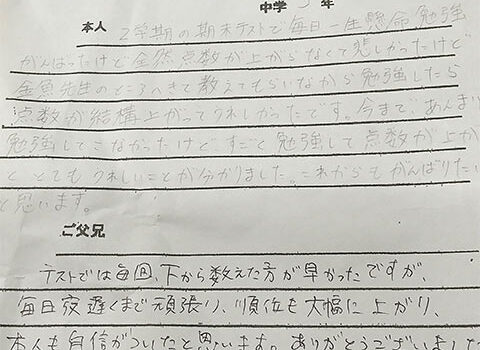 中学 3年
本人 2学期の期末テストで毎日一生懸命勉強
がんばったけど全然点数が上がらなくて悲しかったけど
金魚先生のところへきて教えてもらいながら勉強したら
点数が結構上がってうれしかったです。今まであんまり
勉強してこなかったけど、すごく勉強して点数が上がる
と とてもうれしいことが分かりました。これからもがんばりたい
と思います。
ご父兄
テストでは毎回、下から数えた方が早かったですが、
毎日夜遅くまで頑張り、順位も大幅に上がり、
本人も自信がついたと思います。ありがとうございました